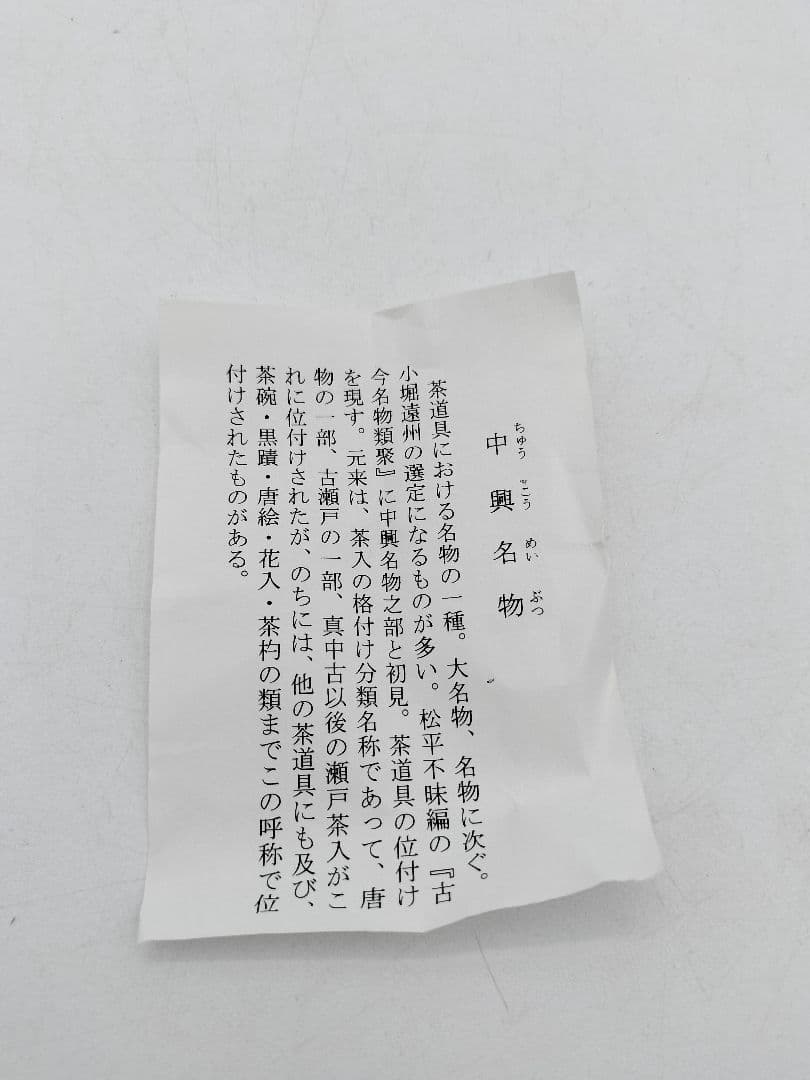 中興名物
ちゅうこうめいぶつ
茶道具における名物の一種。大名物、名物に次ぐ。
小堀遠州の選定になるものが多い。松平不昧編の『古
今名物類聚』に中興名物之部と初見。茶道具の位付け
を現す。元来は、茶入の格付け分類名称であって、唐
物の一部、古瀬戸の一部、真中古以後の瀬戸茶入がこ
れに位付けされたが、のちには、他の茶道具にも及び、
茶碗・黒蹟・唐絵・花入・茶杓の類までこの呼称で位
付けされたものがある。